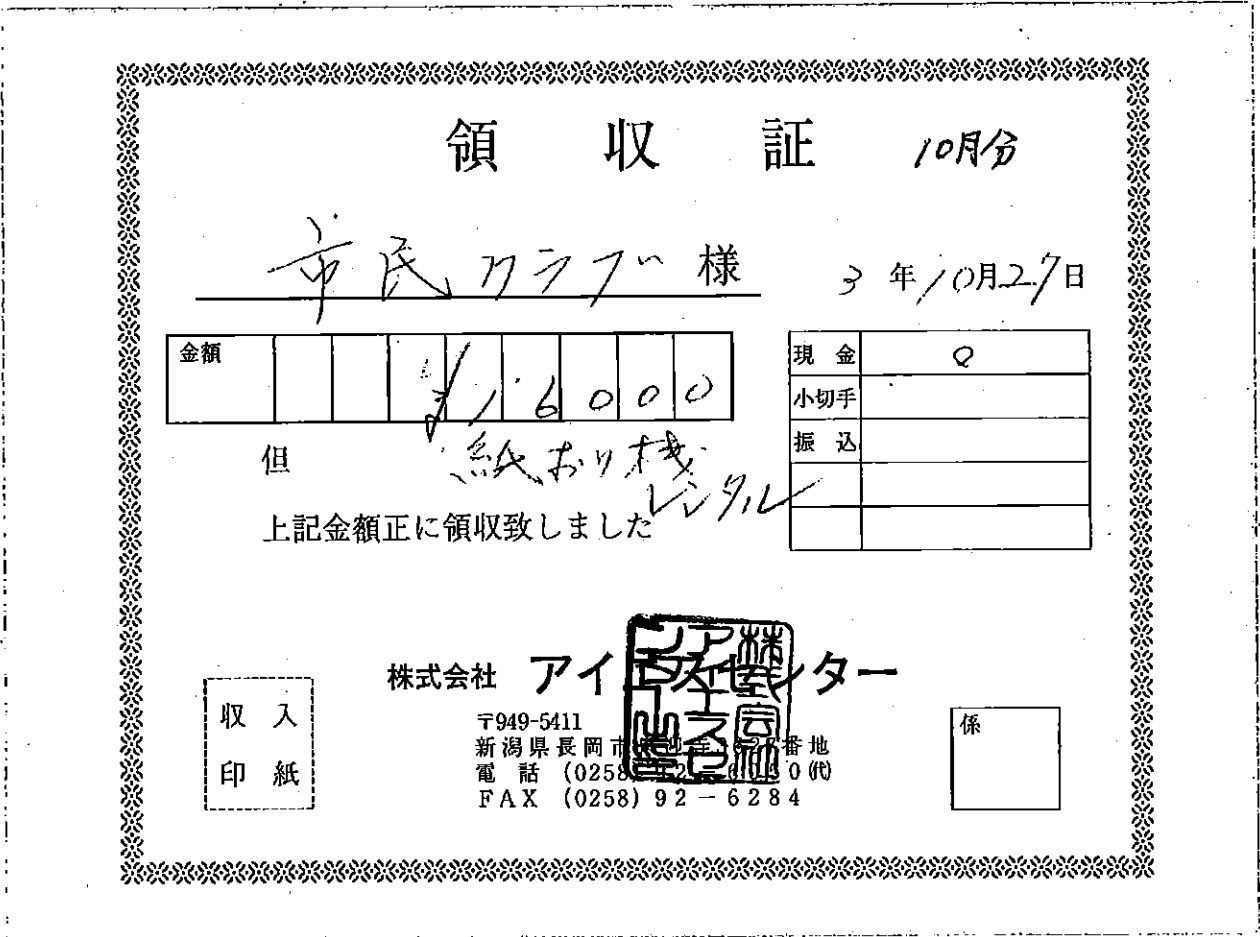 領収証 10月分
市民クラブ 様 3年10月27日
金額 ¥16000
現金 〇
小切手
振込
但 紙おり機レンタル
上記金額正に領収致しました
株式会社 アイ センター
〒949-5411
新潟県長岡市 番地
電話 (0258) 0(代)
FAX (0258) 92-6284
収入印紙
係